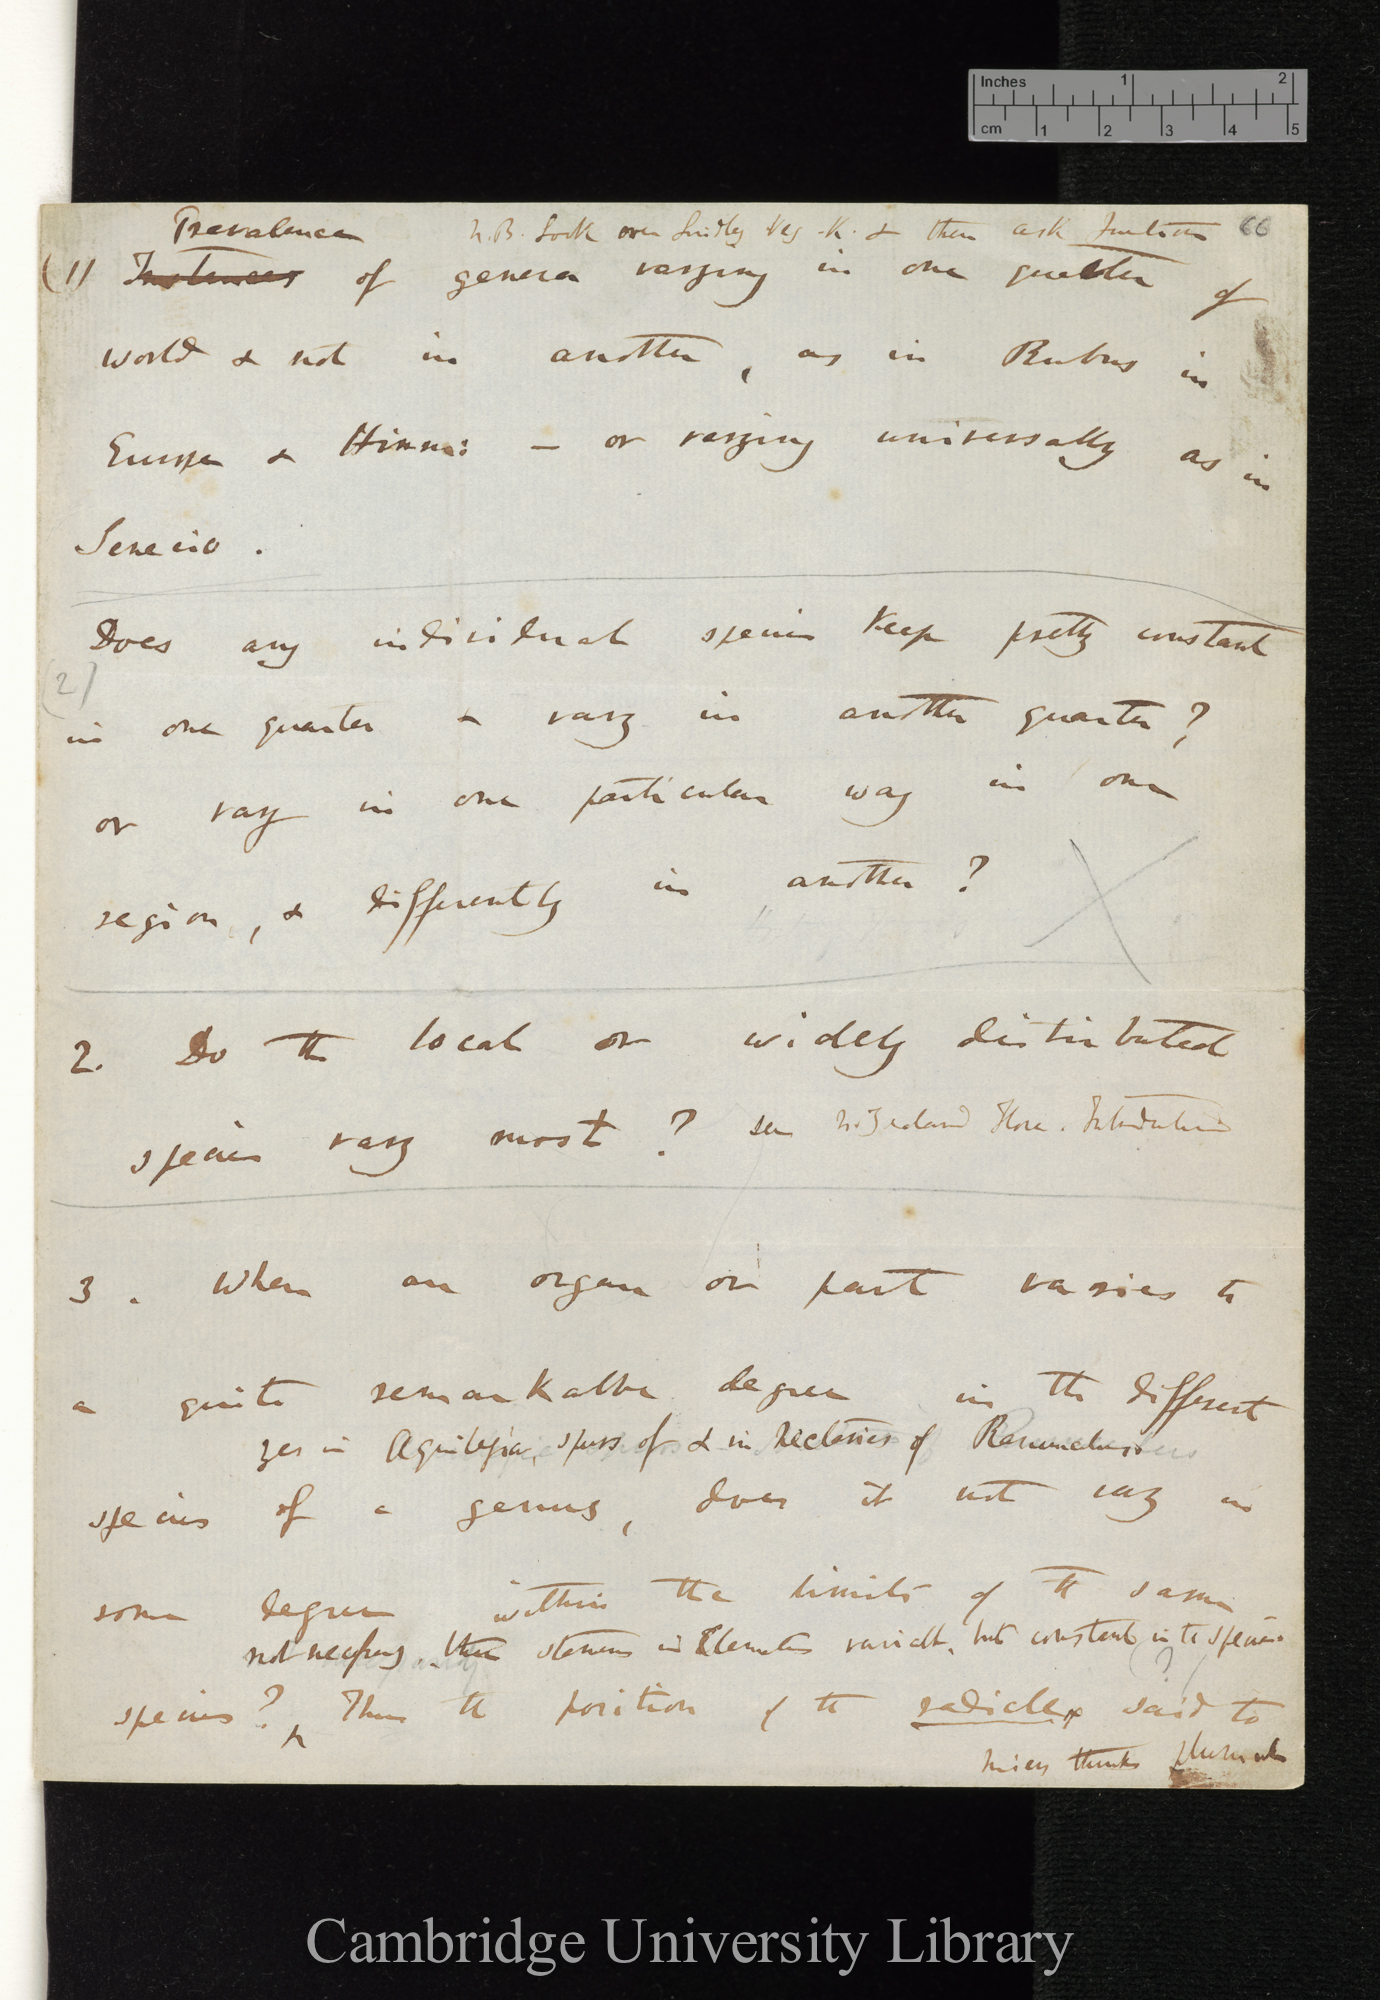 Inches 1 2
cm 1 2 3 4 5
Prevalence N.B. Look over Lindley Veg. K. & then ask questions 66
(1) Instances of genera varying in one quarter of
world & not in another, as in Rubus in
Europe & Himm: — or varying universally as in
Senecio.
Does any individual species keep pretty constant
(2)
in one quarter & vary in another quarter?
or vary in one particular way in one
region, & differently in another?
2. Do the local or widely distributed
species vary most? see N. Zealand Flora. Introduction
3. When an organ or part varies to
a quite remarkable degree in the different
yes in Aquilegia, spurs of & in Nectaries of Ranunculus
species of a genus, does it not vary in
some degree within the limits of the same
not necessary. stamens in Clematis variable, but constant in the species
(?)
species? Thus the position of the radicle said to
thinks plumule
Cambridge University Library